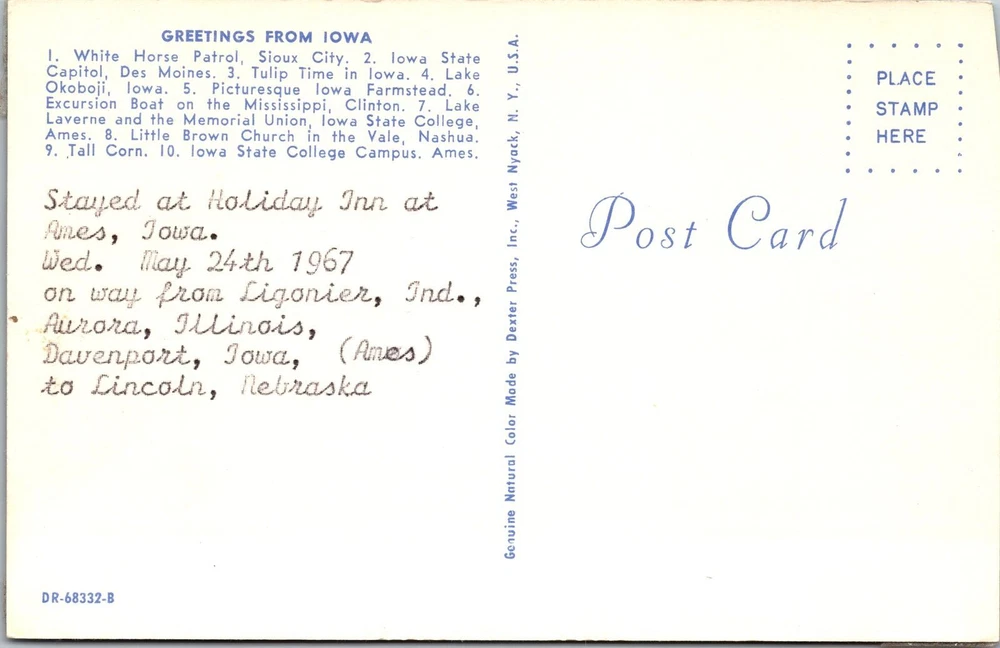 GREETINGS FROM IOWA
1. White Horse Patrol, Sioux City. 2. Iowa State
Capitol, Des Moines. 3. Tulip Time in Iowa. 4. Lake
Okoboji, Iowa. 5. Picturesque Iowa Farmstead. 6.
Excursion Boat on the Mississippi, Clinton. 7. Lake
Laverne and the Memorial Union, Iowa State College,
Ames. 8. Little Brown Church in the Vale, Nashua.
9. Tall Corn. 10. Iowa State College Campus. Ames.
Stayed at Holiday Inn at
Ames, Iowa.
Wed. May 24th 1967
on way from Ligonier, Ind.,
Aurora, Illinois,
Davenport, Iowa, (Ames)
to Lincoln, Nebraska
DR-68332-B
Genuine Natural Color Made by Dexter Press, Inc., West Nyack, N. Y., U.S.A.
Post Card
PLACE
STAMP
HERE